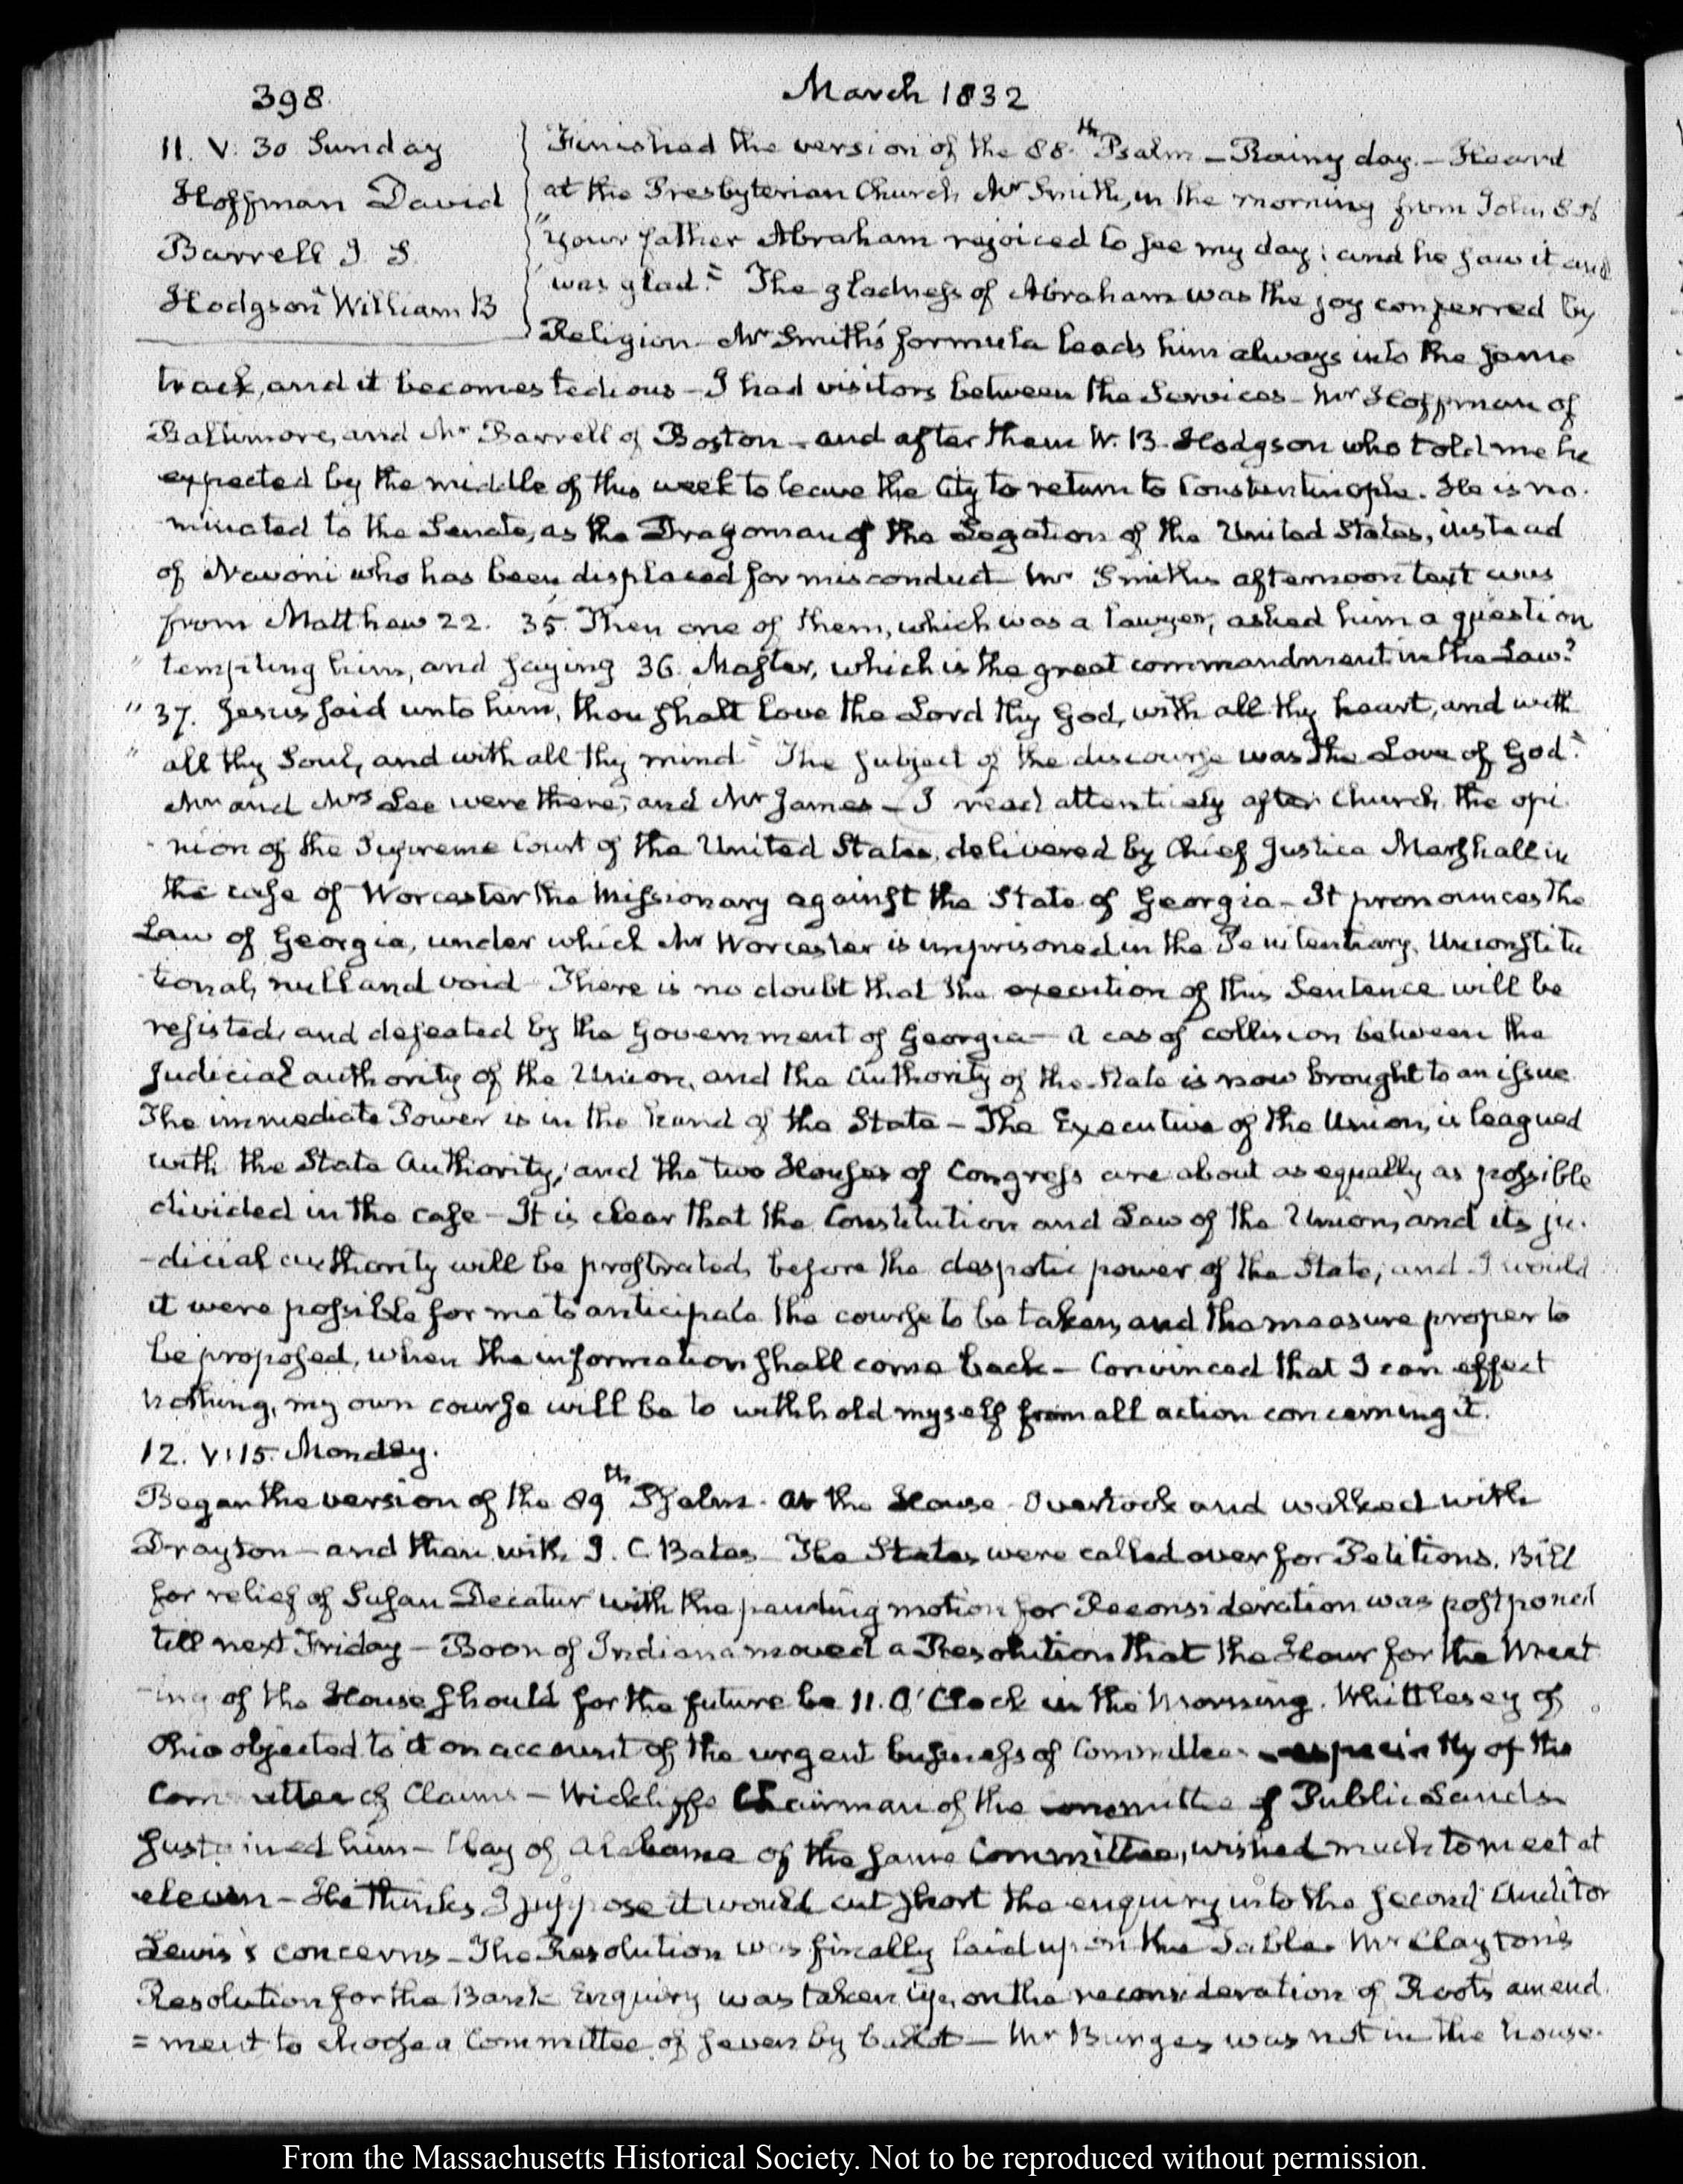 398.
March 1832
11. V. 30 Sunday
Hoffman David
Barrell I. S.
Hodgson William B
Finished the version of the 88.th Psalm — Rainy day. — Heard
at the Presbyterian Church Mr Smith, in the morning from John 8.56
"Your father Abraham rejoiced to see my day: and he saw it and
"was glad." The gladness of Abraham was the joy conferred by
Religion — Mr Smith's formula leads him always into the same
track, and it becomes tedious — I had visitors between the Services — Mr Hoffman of
Baltimore, and Mr Barrell of Boston — and after them W. B. Hodgson who told me he
expected by the middle of this week to leave the City to return to Constantinople. He is no-
minated to the Senate, as the Dragoman of the Legation of the United States, instead
of Navoni who has been displaced for misconduct — Mr Smith's afternoon text was
from Matthew 22. 35. Then one of them, which was a lawyer, asked him a question
" tempting him, and saying 36. Master, which is the great commandment in the Law?
" 37. Jesus said unto him, thou shalt love the Lord thy God, with all thy heart, and with
" all thy Soul, and with all thy mind" The subject of the discourse was "the Love of God."
Mr and Mrs Lee were there, and Mr James — I read attentively after Church, the opi-
-nion of the Supreme Court of the United States, delivered by Chief Justice Marshall in
the case of Worcester the Missionary against the State of Georgia — It pronounces the
Law of Georgia, under which Mr Worcester is imprisoned in the Penitentiary, Unconstitu
-tional, null and void — There is no doubt that the execution of this Sentence will be
resisted, and defeated by the Government of Georgia — A cas of collision between the
Judicial authority of the Union, and the Authority of the State is now brought to an issue.
The immediate Power is in the hand of the State — The Executive of the Union, is leagued
with the State Authority; and the two Houses of Congress are about as equally as possible
divided in the case — It is clear that the Constitution and Law of the Union, and its ju-
-dicial authority will be prostrated, before the despotic power of the State; and I would
it were possible for me to anticipate the course to be taken, and the measure proper to
be proposed, when the information shall come back — Convinced that I can effect
nothing, my own course will be to withhold myself from all action concerning it.
12. V:15. Monday.
Began the version of the 89th Psalm. At the House — Overtook and walked with
Drayton — and then with I. C. Bates — The States were called over for Petitions. Bill
for relief of Susan Decatur with the pending motion for Reconsideration was postponed
till next Friday — Boon of Indiana moved a Resolution that the Hour for the Meet
-ing of the House should for the future be 11. O'Clock in the Morning. Whittlesey of
Ohio objected to it on account of the urgent business of Committees — especially of the
Committee of Claims — Wickliffe Chairman of the Committee of Public Lands
sustained him — Clay of Alabama of the same Committee, wished much to meet at
eleven — He thinks I suppose it would cut short the enquiry into the second Auditor
Lewis's concerns — The Resolution was finally laid upon the Table. Mr Clayton's
Resolution for the Bank Enquiry was taken up, on the reconsideration of Root's amend
= ment to choose a Committee of seven by ballot — Mr Burges was not in the house.
From the Massachusetts Historical Society. Not to be reproduced without permission.